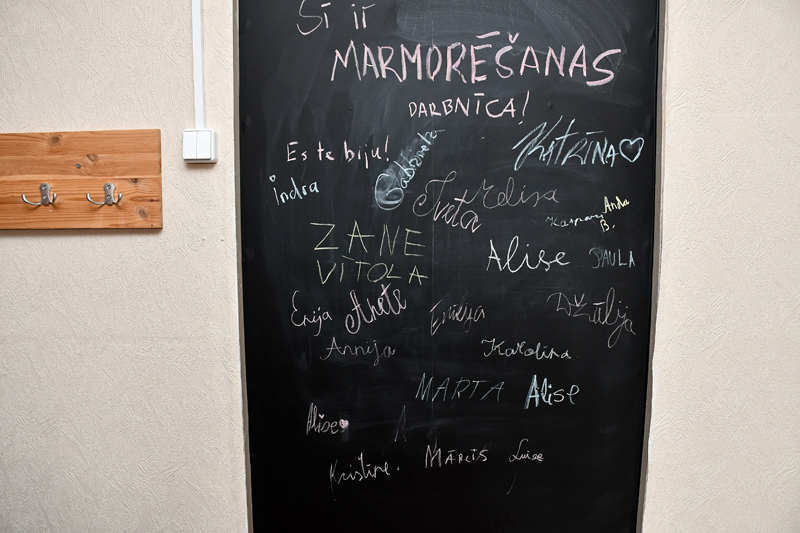 ŠĪ IR
MARMORĒŠANAS
DARBNĪCA!
Es te biju!
Gabriela
KATRĪNA♡
Indra
Iveta
Melisa
Kaspars
Anna
B.
ZANE
VĪTOLA
Alise
PAULA
Enija
Anete
Emīlija
Džūlija
Annija
Karolīna
MARTA
Alise
Alise♥
A
Kristīne.
MĀRCIS
Luīze